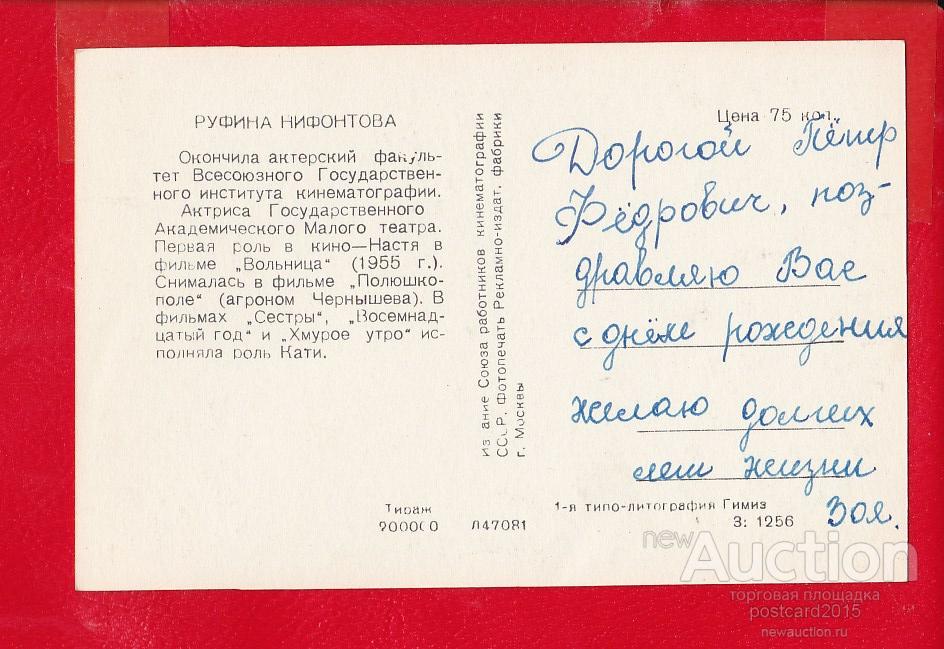 РУФИНА НИФОНТОВА
Окончила актерский факуль-
тет Всесоюзного Государствен-
ного института кинематографии.
Актриса Государственного
Академического Малого театра.
Первая роль в кино—Настя в
фильме „Вольница“ (1955 г.).
Снималась в фильме „Полюшко-
поле“ (агроном Чернышева). В
фильмах „Сестры“, „Восемнад-
цатый год“ и „Хмурое утро“ ис-
полняла роль Кати.
Тираж
200000
Л47081
издание Союза работников кинематографии
СССР. Фотопечать Рекламно-издат. фабрики
г. Москвы
Цена 75 коп.
Дорогой Пётр
Фёдрович, поз-
дравляю Вас
с днём рождения
желаю долгих
лет жизни
Зоя.
1-я типо-литография Гимиз
З: 1256
newAuction
торговая площадка
postcard2015
newauction.ru